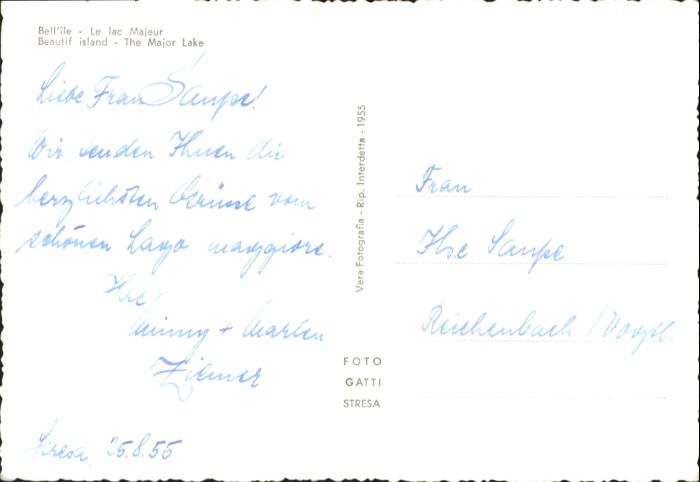 Bell'île - Le lac Majeur
Beautif island - The Major Lake
Liebe Frau Saupe!
Wir senden Ihnen die
herzlichsten Grüsse vom
schönen Lago maggiore.
Ihre
Minny + Marlen
Ziemer
Stresa, 25.8.55
Vera Fotografia - Rip. Interdetta - 1955
FOTO
GATTI
STRESA
Frau
Ilse Saupe
Reichenbach / Vogtl.